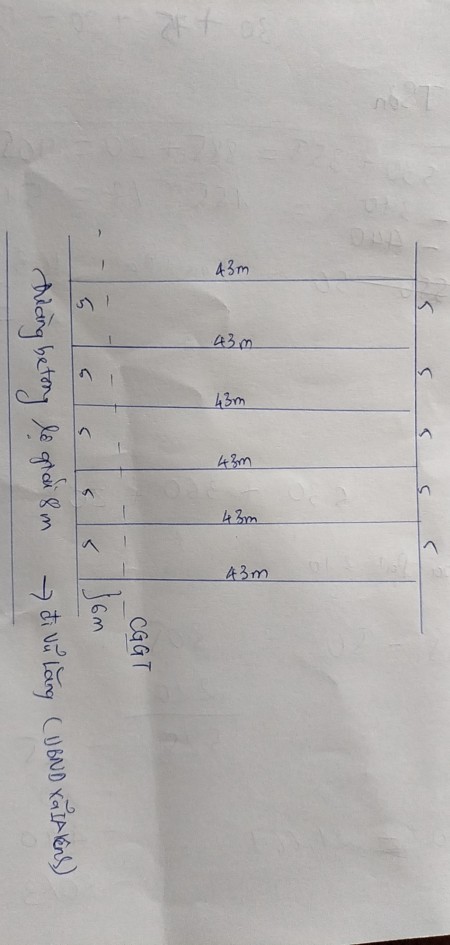 43m
5 5
43m
5 5
43m
5 5
43m
5 5
43m
5 5
43m
}6m
CGGT
Đường bê tông lộ giới 8m → đi Vũ Lăng (UBND xã IA